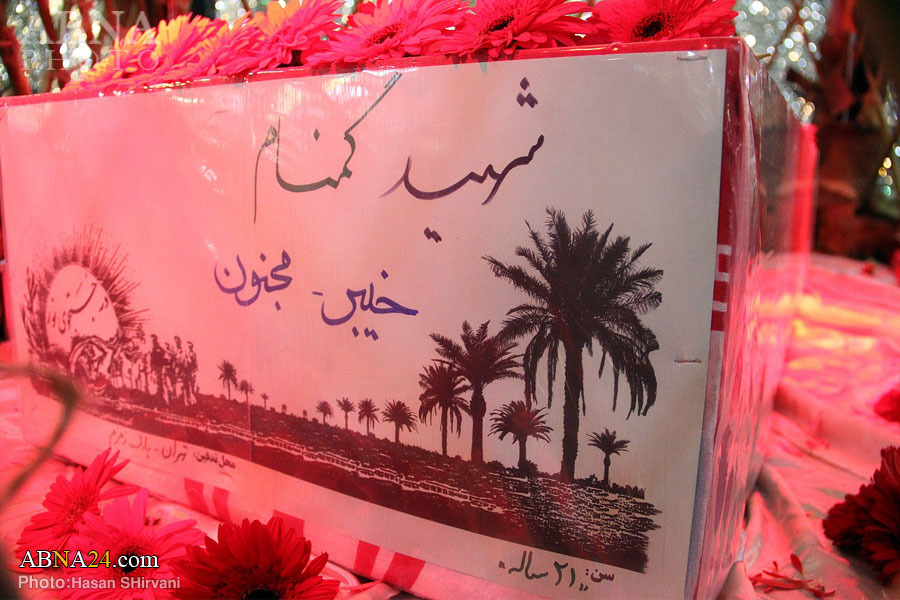 ABNA
PHOTO
شهید گمنام
خیبر - مجنون
محل تدفین: تهران -
سن: ۲۱ ساله
ABNA24.com
Photo:Hasan SHirvani